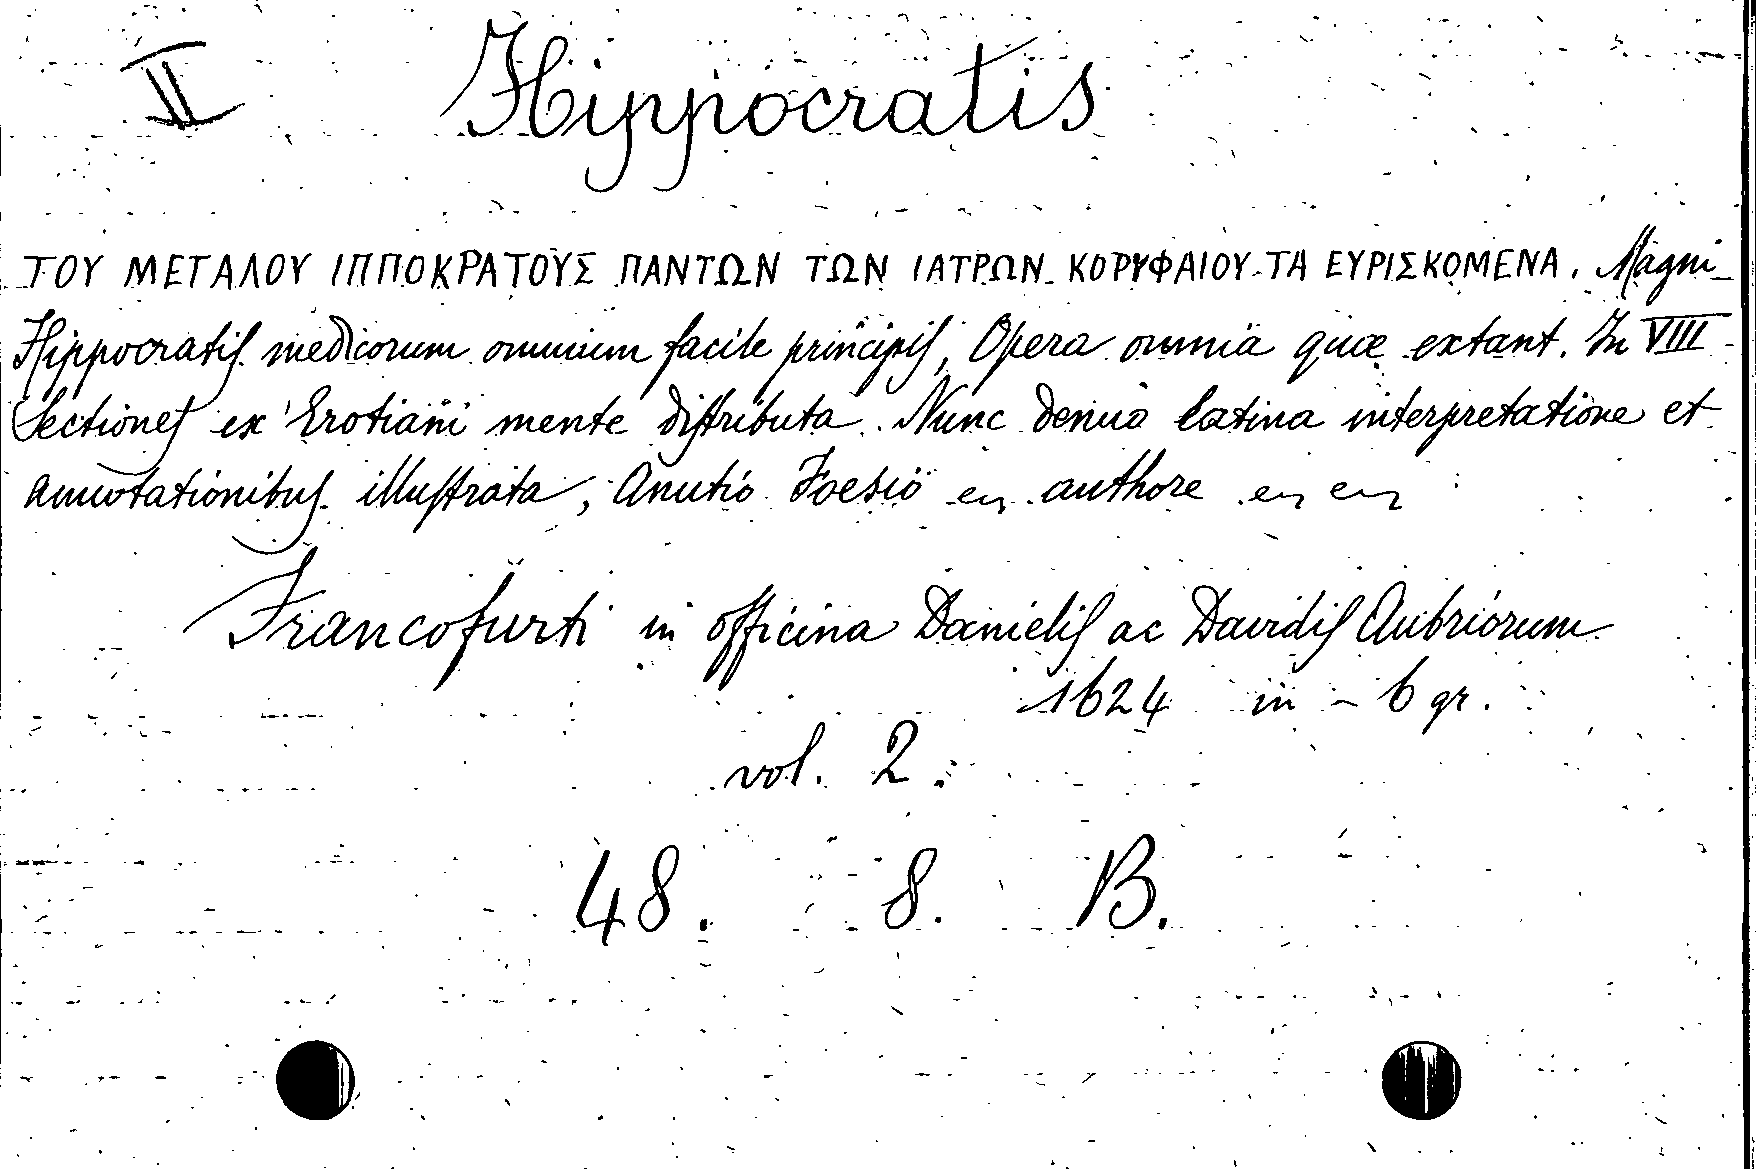 II Hippocratis
ΤΟΥ ΜΕΓΑΛΟΥ ΙΠΠΟΚΡΑΤΟΥΣ ΠΑΝΤΩΝ ΤΩΝ ΙΑΤΡΩΝ ΚΟΡΥΦΑΙΟΥ ΤΑ ΕΥΡΙΣΚΟΜΕΝΑ. Magni
Hippocratis medicorum omnium facile principis, Opera omnia quæ extant. In VIII
Sectiones ex Erotiani mente distributa. Nunc denuo latina interpretatione et
annotationibus illustrata, Anutio Foesio authore
Francofurti in officina Danielis ac Davidis Aubriorum
1624 in - 6 gr.
vol. 2.
48. 8. B.